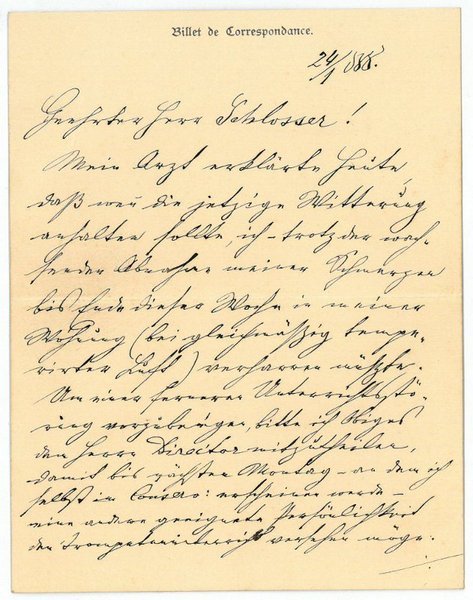 Billet de Correspondance.
24/1 888.
Geehrter Herr Schlosser!
Mein Arzt erklärte heute,
daß wen die jetzige Witterung
anhalten sollte, ich – trotz der wach-
senden Abnahme meiner Schmerzen
bis Ende dieser Woche in meiner
Wohnung (bei gleichmäßig tempe-
rirter Luft) verharren müßte.
Um einer ferneren Unterrichtsstö-
rung vorzubeugen, bitte ich Obiges
dem Herrn Director mitzutheilen,
damit bis nächsten Montag – an dem ich
selbst im Conserv: erscheinen werde –
eine andere geeignete Persönlichkeit
den Trompetenunterricht versehen möge.